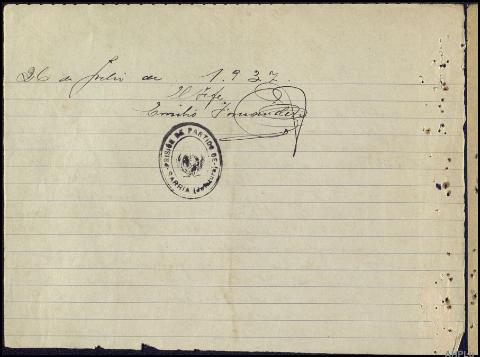 26 de Julio de 1.937.
El Jefe
Emilio Fernandez
PRISIÓN DE PARTIDO DE
SARRIA